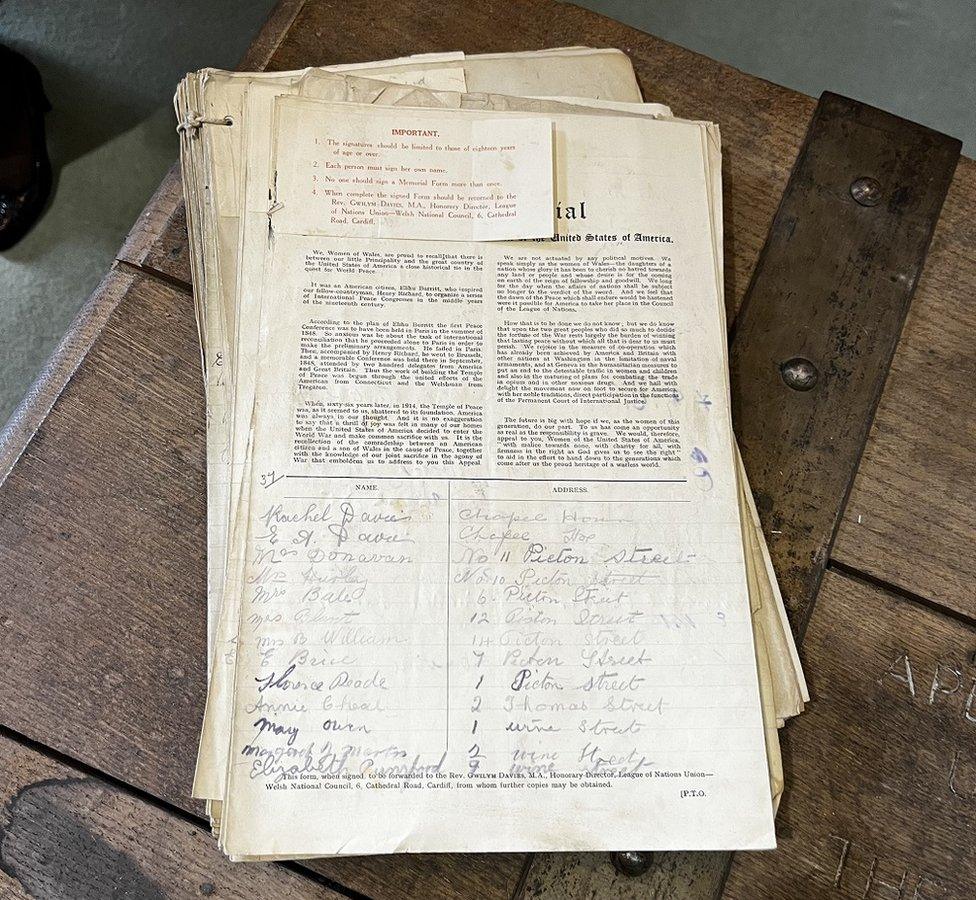 IMPORTANT.
1. The signatures should be limited to those of eighteen years
of age or over.
2. Each person must sign her own name.
3. No one should sign a Memorial Form more than once.
4. When complete the signed Form should be returned to the
Rev. GWILYM DAVIES, M.A., Honorary Director, League
of Nations Union—Welsh National Council, 6, Cathedral
Road, Cardiff.
ial
of the United States of America.
We, Women of Wales, are proud to recall that there is
between our little Principality and the great country of
the United States of America a close historical tie in the
quest for World Peace.
It was an American citizen, Elihu Burritt, who inspired
our fellow-countryman, Henry Richard, to organize a series
of International Peace Congresses in the middle years
of the nineteenth century.
According to the plan of Elihu Burritt the first Peace
Conference was to have been held in Paris in the summer of
1848. So anxious was he about the task of international
reconciliation that he proceeded alone to Paris in order to
make the preliminary arrangements. He failed in Paris.
Then, accompanied by Henry Richard, he went to Brussels,
and a memorable Conference was held there in September,
1848, attended by two hundred delegates from America
and Great Britain. Thus the work of building the Temple
of Peace was begun through the united efforts of the
American from Connecticut and the Welshman from
Tregaron.
When, sixty-six years later, in 1914, the Temple of Peace
was, as it seemed to us, shattered to its foundation, America
was always in our thought. And it is no exaggeration
to say that a thrill of joy was felt in many of our homes
when the United States of America decided to enter the
World War and make common sacrifice with us. It is the
recollection of the comradeship between an American
citizen and a son of Wales in the cause of Peace, together
with the knowledge of our joint sacrifice in the agony of
War that emboldens us to address to you this Appeal
We are not actuated by any political motives. We
speak simply as the women of Wales—the daughters of a
nation whose glory it has been to cherish no hatred towards
any land or people and whose desire is for the coming
on earth of the reign of fellowship and goodwill. We long
for the day when the affairs of nations shall be subject
no longer to the verdict of the sword. And we feel that
the dawn of Peace which shall endure would be hastened
were it possible for America to take her place in the Council
of the League of Nations.
How that is to be done we do not know; but we do know
that upon two great peoples who did so much to decide
the fortune of the War rests the responsibility of winning
that lasting peace without which all that is dear to us must
perish. We rejoice in the measure of co-operation which
has already been achieved by America and Britain with
other nations at Washington in the limitation of naval
armaments, and at Geneva in the humanitarian measures to
put an end to the detestable traffic in women and children
and also in the maturing of plans for combating the trade
in opium and in other noxious drugs. And we hail with
delight the movement now on foot to secure for America,
with her noble traditions, direct participation in the functions
of the Permanent Court of International Justice.
The future is big with hope if we, as the women of this
generation, do our part. To us has come an opportunity
as real as the responsibility is grave. We would, therefore,
appeal to you, Women of the United States of America,
"with malice towards none, with charity for all, with
firmness in the right as God gives us to see the right"
to aid in the effort to hand down to the generations which
come after us the proud heritage of a warless world.
37
NAME. ADDRESS.
Rachel Davies Chapel House
E A Davies Chapel Hse
Mrs Donavan No 11 Picton Street
Mrs Hurley No 10 Picton Street
Mrs Bale 6 Picton Street
Mrs 12 Picton Street
Mrs B William 14 Picton Street
E Brice 7 Picton Street
Florence Reade 1 Picton Street
Annie Cheal 2 Thomas Street
May Owen 1 wine Street
Margaret J. 2 wine Street
Elizabeth wine Street
This form, when signed, to be forwarded to the Rev. GWILYM DAVIES, M.A., Honorary Director, League of Nations Union—
Welsh National Council, 6, Cathedral Road, Cardiff, from whom further copies may be obtained.
[P.T.O.